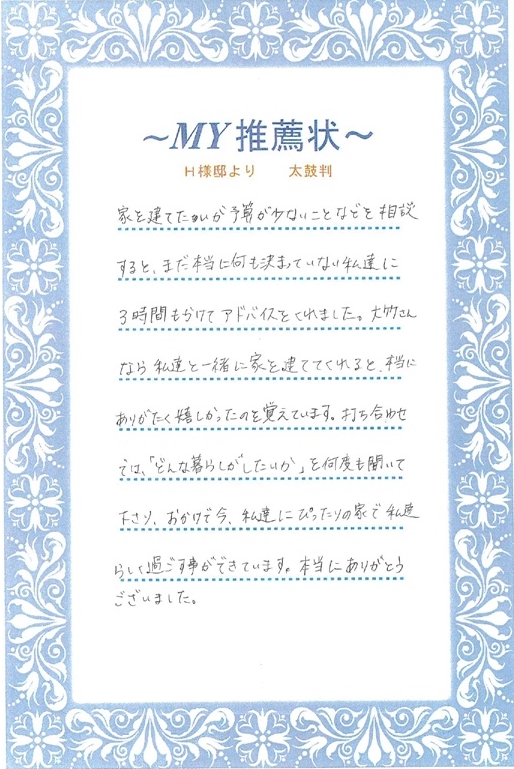 ～MY推薦状～
H様邸より　太鼓判
家を建てたいが予算が少ないことなどを相談
すると、まだ本当に何も決まっていない私達に
3時間もかけてアドバイスをくれました。大竹さん
なら私達と一緒に家を建ててくれると、本当に
ありがたく嬉しかったのを覚えています。打ち合わせ
では、「どんな暮らしがしたいか」を何度も聞いて
下さり、おかげで今、私達にぴったりの家で私達
らしく過ごす事ができています。本当にありがとう
ございました。